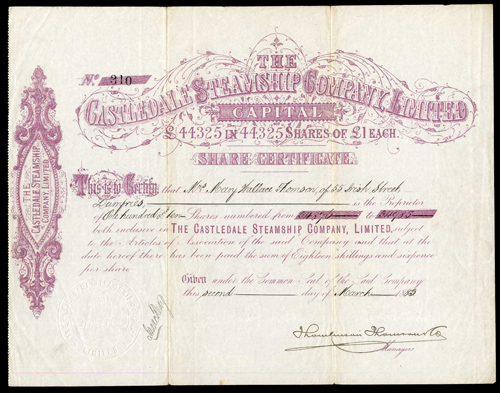 No. 310
THE
CASTLEDALE STEAMSHIP COMPANY, LIMITED
CAPITAL
£44325 IN 44325 SHARES OF £1 EACH.
SHARE CERTIFICATE.
This is to Certify that Mrs Mary Wallace Thomson, of 53 Irish Street
Dumfries, is the Proprietor
of One hundred & ten Shares numbered from to
both inclusive in THE CASTLEDALE STEAMSHIP COMPANY, LIMITED, subject
to the Articles of Association of the said Company and that at the
date hereof there has been paid the sum of Eighteen shillings and sixpence
per share
Given under the Common Seal of the Said Company
this second day of March 1885
Managers
THE
CASTLEDALE STEAMSHIP
COMPANY, LIMITED